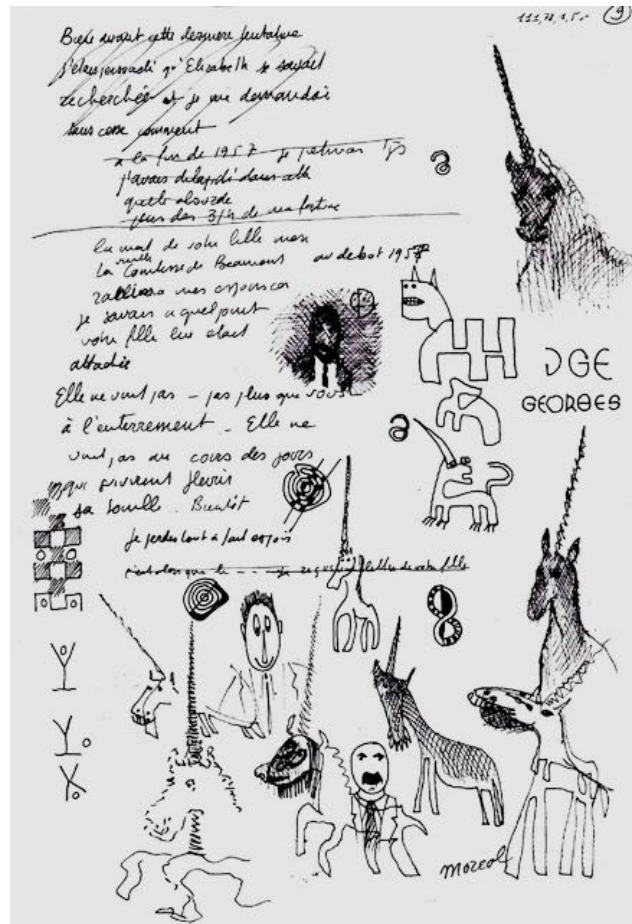 111, 78, 1, 5
9
Bien avant cette dernière tentative
j'étais persuadé qu'Elizabeth se savait
recherchée et je me demandais
sans cesse comment
a la fin de 1957 je
j'avais dilapidé dans cette
quête absurde
plus des 3/4 de ma fortune
la mort de votre belle mère
la Comtesse de Beaumont au debut 1957
mes espoirs car
je savais a quel point
votre fille lui etait
attachée
Elle ne vint pas – pas plus que vous
à l'enterrement – Elle ne
vint pas au cours des jours
qui suivirent fleurir
sa tombe. Bientôt
je perdis tout à fait espoir
c'est alors que lettre de votre fille
GEORGES